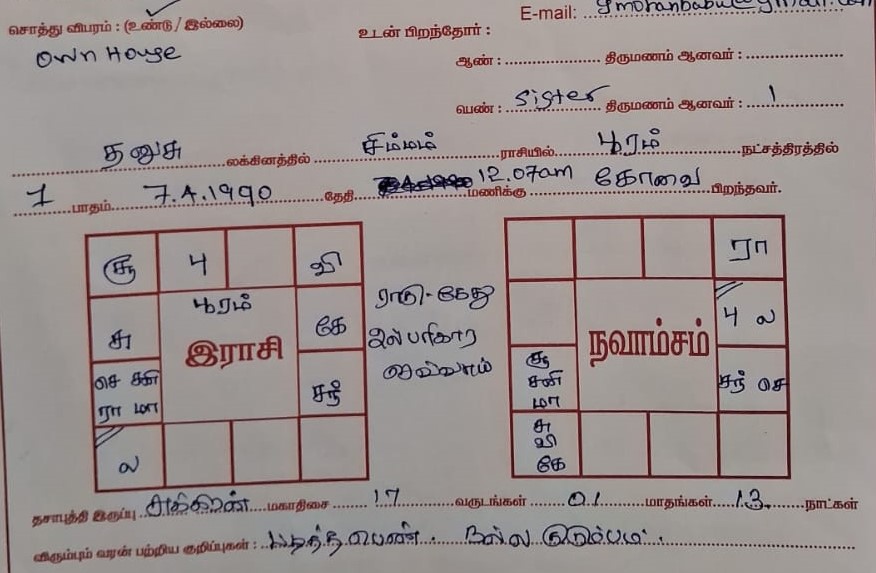 E-mail: gmohanbabu@gmail.com
சொத்து விபரம் : (உண்டு / இல்லை)
உடன் பிறந்தோர் :
Own House
ஆண் : திருமணம் ஆனவர் :
பெண் : Sister திருமணம் ஆனவர் : 1
தனுசு லக்கினத்தில் சிம்மம் ராசியில் பூரம் நட்சத்திரத்தில்
1 பாதம் 7.4.1990 தேதி 12.07am மணிக்கு கோவை பிறந்தவர்.
சூ பு வி
ரா
பூரம்
சு இராசி கே
ராகு - கேது
நவாம்சம் பு ல
செ சனி
ரா மா சந்
சூ
சனி
மா சந் செ
ல
சு
வி
கே
தசாபுத்தி இருப்பு சுக்கிரன் மகாதிசை 17 வருடங்கள் 01 மாதங்கள் 13 நாட்கள்
விரும்பும் வரன் பற்றிய குறிப்புகள் : படித்த பெண். நல்ல குடும்பம்.